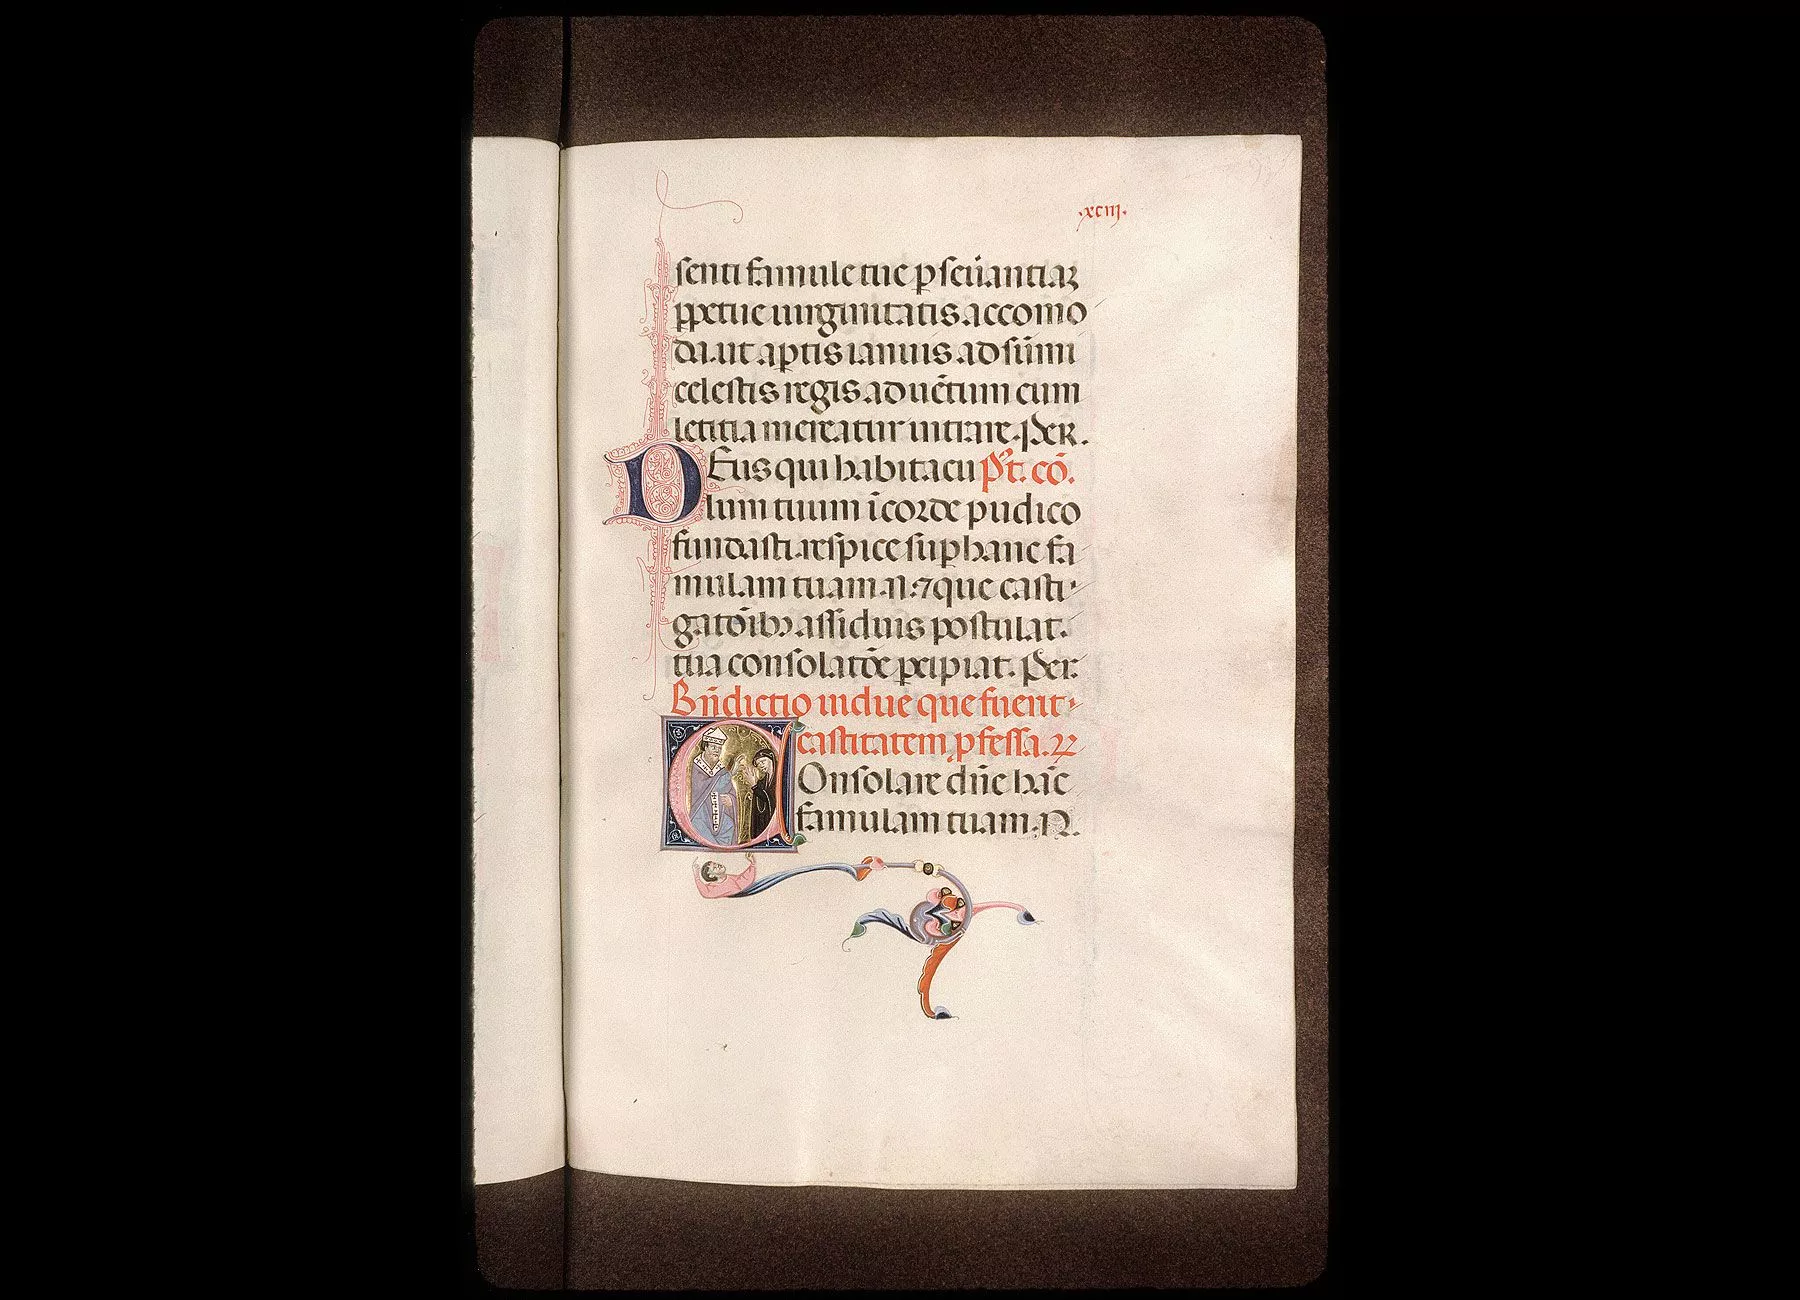 .xciij.
senti famule tue ꝑseũantiaꝫ
ꝑpetue uirginitatis accomo
da. ut aꝑtis ianuis ad sũmi
celestis regis aduẽtum cum
letitia mereatur intrare. Per.
DEus qui habitacu Pꝰt. cõ.
lum tuum ĩ corde pudico
fundasti. respice suꝑ hanc fa
mulam tuam .N. ⁊ que casti
gatõibꝫ assiduis postulat.
tua consolatõe ꝑcipiat. Per.
Bñdictio uidue que fuerit
castitatem ꝓfessa.
COnsolare dñe hãc
famulam tuam .N.